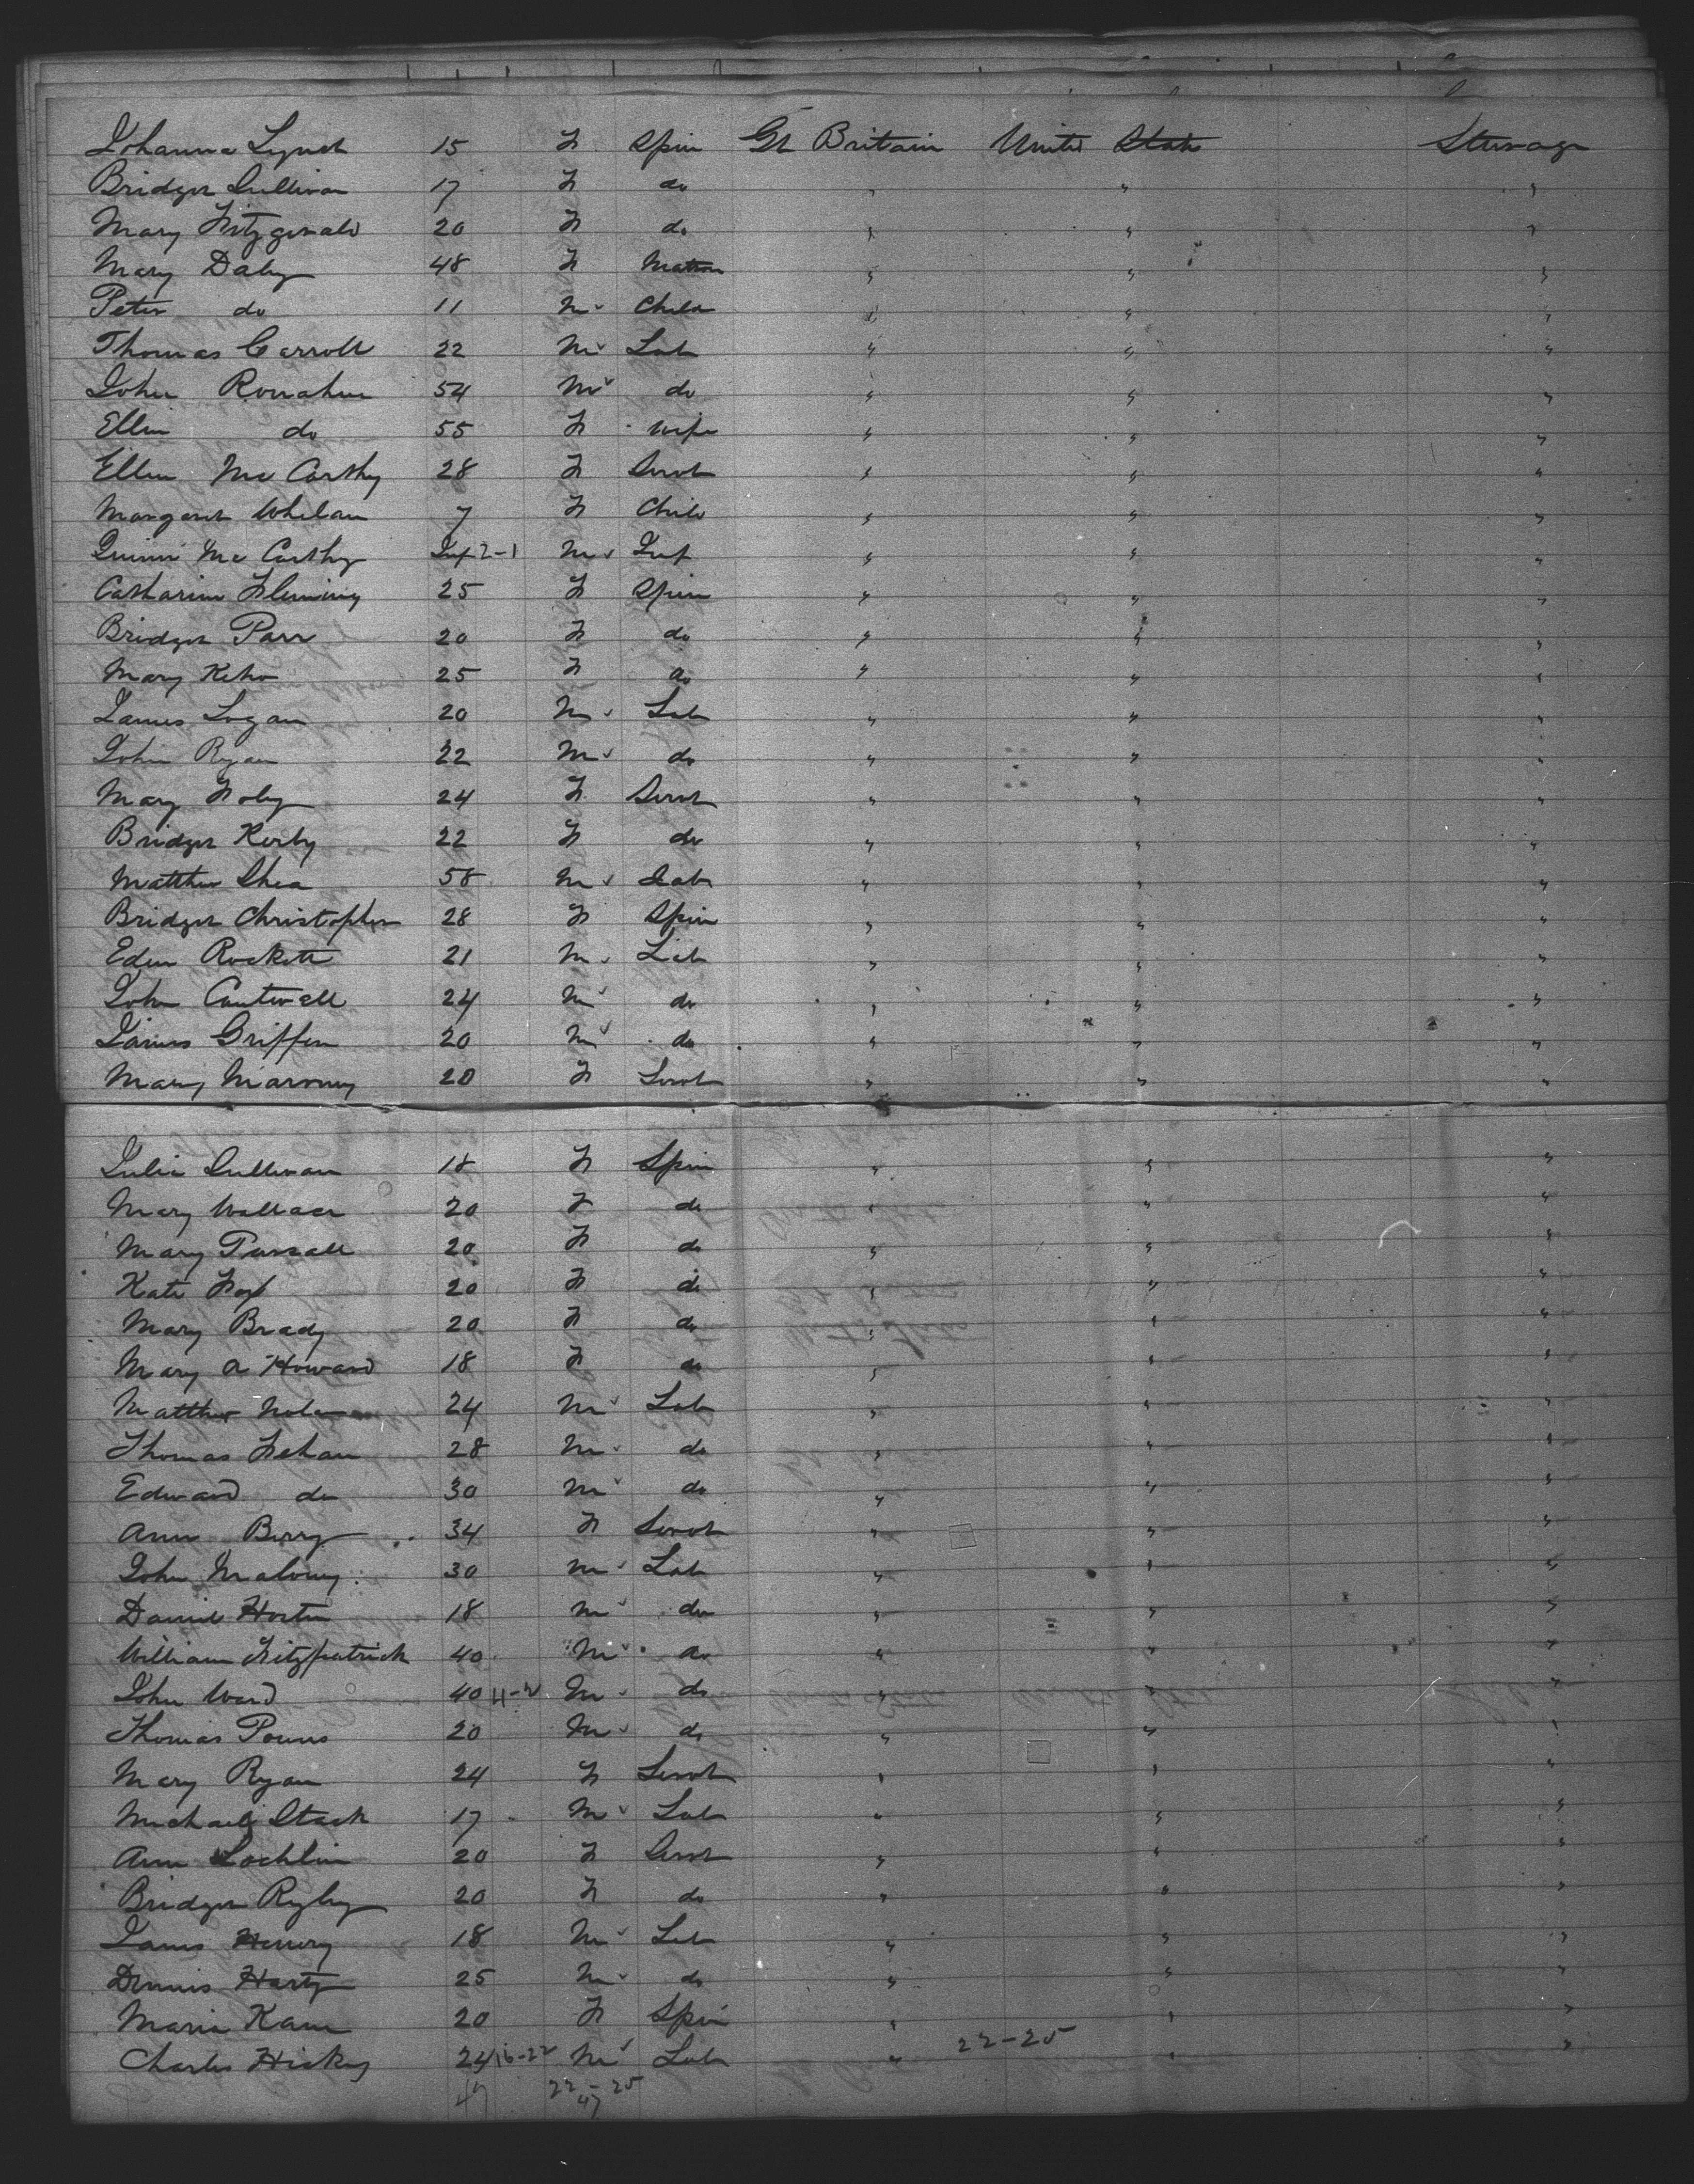 Johanna Lynch 15 F Spin Gt Britain United States Steerage
Bridget Sullivan 17 F do " " "
Mary Fitzgerald 20 F do " " "
Mary Daly 48 F Matron " " "
Peter do 11 M Child " " "
Thomas Carroll 22 M Lab " " "
John Ronahue 54 M do " " "
Ellen do 55 F Wife " " "
Ellen McCarthy 28 F Servt " " "
Margaret Whelan 7 F Child " " "
McCarthy Inf 2-1 M Inf " " "
Catharine Fleming 25 F Spin " " "
Bridget Parr 20 F do " " "
Mary Keho 25 F do " " "
James Logan 20 M Lab " " "
John Ryan 22 M do " " "
Mary Foley 24 F Servt " " "
Bridget Kerby 22 F do " " "
Matthew Shea 58 M Lab " " "
Bridget Christopher 28 F Spin " " "
Edw Rockett 21 M Lab " " "
John Cantwell 24 M do " " "
James Griffin 20 M do " " "
Mary Maroney 20 F Servt " " "
Julia Sullivan 18 F Spin " " "
Mary Wallace 20 F do " " "
Mary Pursall 20 F do " " "
Kate 20 F do " " "
Mary Brady 20 F do " " "
Mary A Howard 18 F do " " "
Matthew Nolan 24 M Lab " " "
Thomas Fehan 28 M do " " "
Edward do 30 M do " " "
Ann Berry 34 F Servt " " "
John Malony 30 M Lab " " "
Daniel 18 M do " " "
William Fitzpatrick 40 M do " " "
John Ward 40 11-2 M do " " "
Thomas Powers 20 M do " " "
Mary Ryan 24 F Servt " " "
Michael Stack 17 M Lab " " "
Ann Lochlin 20 F Servt " " "
Bridget 20 F do " " "
James 18 M Lab " " "
Dennis Harty 25 M do " " "
Maria Kane 20 F Spin " " "
Charles Hickey 24 16-22 M Lab " 22-25 " "
47 22-25
47